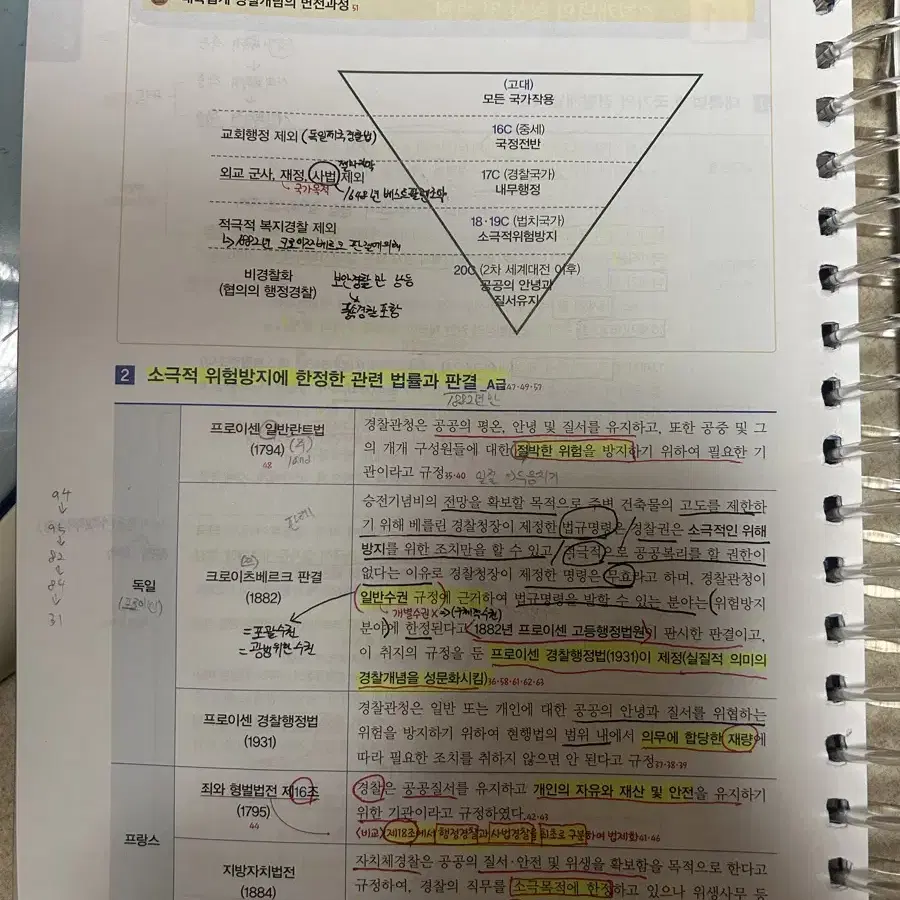 대륙법계 경찰개념의 변천과정 51
(고대)
모든 국가작용
교회행정 제외 (독일제국경찰법)
16C (중세)
국정전반
외교 군사, 재정, 사법 제외
국가목적
1648년 베스트팔렌조약
17C (경찰국가)
내무행정
적극적 복지경찰 제외
↳ 1882년 크로이츠베르크 판결에 의해
18·19C (법치국가)
소극적위험방지
비경찰화
(협의의 행정경찰)
보안경찰만 남듬
풍속경찰 포함
20C (2차 세계대전 이후)
공공의 안녕과
질서유지
2 소극적 위험방지에 한정한 관련 법률과 판결_A급 47·49·57
1882년만
프로이센 일반란트법
(1794)
48
(주)
land
경찰관청은 공공의 평온, 안녕 및 질서를 유지하고, 또한 공중 및 그
의 개개 구성원들에 대한 절박한 위험을 방지하기 위하여 필요한 기
관이라고 규정35·40
94
↓
95
↓
82
↓
84
↓
31
독일
(프로이센)
판례
크로이츠베르크 판결
(1882)
= 포괄수권
= 광범위한 수권
승전기념비의 전망을 확보할 목적으로 주변 건축물의 고도를 제한하
기 위해 베를린 경찰청장이 제정한 법규명령은 경찰권은 소극적인 위해
방지를 위한 조치만을 할 수 있고, 적극적으로 공공복리를 할 권한이
없다는 이유로 경찰청장이 제정한 명령은 무효라고 하며, 경찰관청이
일반수권 규정에 근거하여 법규명령을 발할 수 있는 분야는 (위험방지
개별수권 X → (구체적수권)
분야)에 한정된다고 (1882년 프로이센 고등행정법원)이 판시한 판결이고,
이 취지의 규정을 둔 프로이센 경찰행정법(1931)이 제정(실질적 의미의
경찰개념을 성문화시킴)36·58·61·62·63
프로이센 경찰행정법
(1931)
경찰관청은 일반 또는 개인에 대한 공공의 안녕과 질서를 위협하는
위험을 방지하기 위하여 현행법의 범위 내에서 의무에 합당한 재량에
따라 필요한 조치를 취하지 않으면 안 된다고 규정37·38·39
프랑스
죄와 형벌법전 제16조
(1795)
44
경찰은 공공질서를 유지하고 개인의 자유와 재산 및 안전을 유지하기
위한 기관이라고 규정하였다.42·43
(비교) 제18조에서 행정경찰과 사법경찰을 최초로 구분하여 법제화 41·46
지방자치법전
(1884)
자치체경찰은 공공의 질서·안전 및 위생을 확보함을 목적으로 한다고
규정하여, 경찰의 직무를 소극목적에 한정하고 있으나 위생사무 등